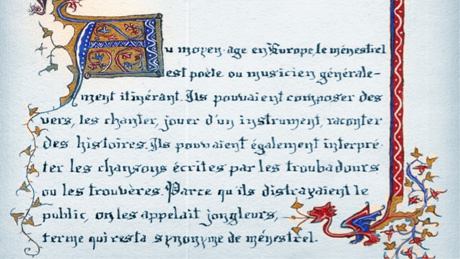 Au moyen-age en Europe, le ménestrel
est poète ou musicien générale-
ment itinérant. Ils pouvaient composer des
vers, les chanter, jouer d'un instrument, raconter
des histoires. Ils pouvaient également interpré-
ter les chansons écrites par les troubadours
ou les trouvères. Parce qu'ils distrayaient le
public, on les appelait jongleurs,
terme qui resta synonyme de ménestrel.